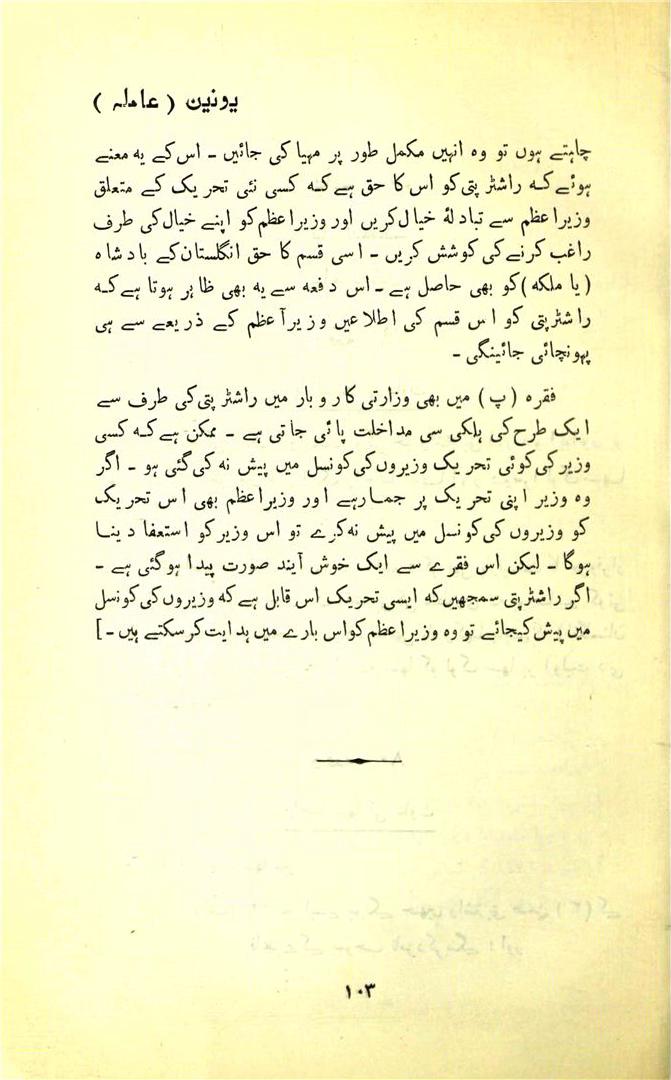 یونین ( عاملہ )
چاہتے ہوں تو وہ انہیں مکمل طور پر مہیا کی جائیں ۔ اس کے یہ معنے
ہوئے کہ راشٹرپتی کو اس کا حق ہے کہ کسی نئی تحریک کے متعلق
وزیراعظم سے تبادلۂ خیال کریں اور وزیراعظم کو اپنے خیال کی طرف
راغب کرنے کی کوشش کریں ۔ اسی قسم کا حق انگلستان کے بادشاہ
( یا ملکہ ) کو بھی حاصل ہے ۔ اس دفعہ سے یہ بھی ظاہر ہوتا ہے کہ
راشٹرپتی کو اس قسم کی اطلاعیں وزیرآعظم کے ذریعے سے ہی
پہونچائی جائینگی ۔
فقرہ ( پ ) میں بھی وزارتی کاروبار میں راشٹرپتی کی طرف سے
ایک طرح کی ہلکی سی مداخلت پائی جاتی ہے ۔ ممکن ہے کہ کسی
وزیر کی کوئی تحریک وزیروں کی کونسل میں پیش نہ کی گئی ہو ۔ اگر
وہ وزیر اپنی تحریک پر جما رہے اور وزیراعظم بھی اس تحریک
کو وزیروں کی کونسل میں پیش نہ کرے تو اس وزیر کو استعفا دینا
ہوگا ۔ لیکن اس فقرے سے ایک خوش آیند صورت پیدا ہوگئی ہے ۔
اگر راشٹرپتی سمجھیں کہ ایسی تحریک اس قابل ہے کہ وزیروں کی کونسل
میں پیش کیجائے تو وہ وزیراعظم کو اس بارے میں ہدایت کرسکتے ہیں ۔ ]
۱۰۳